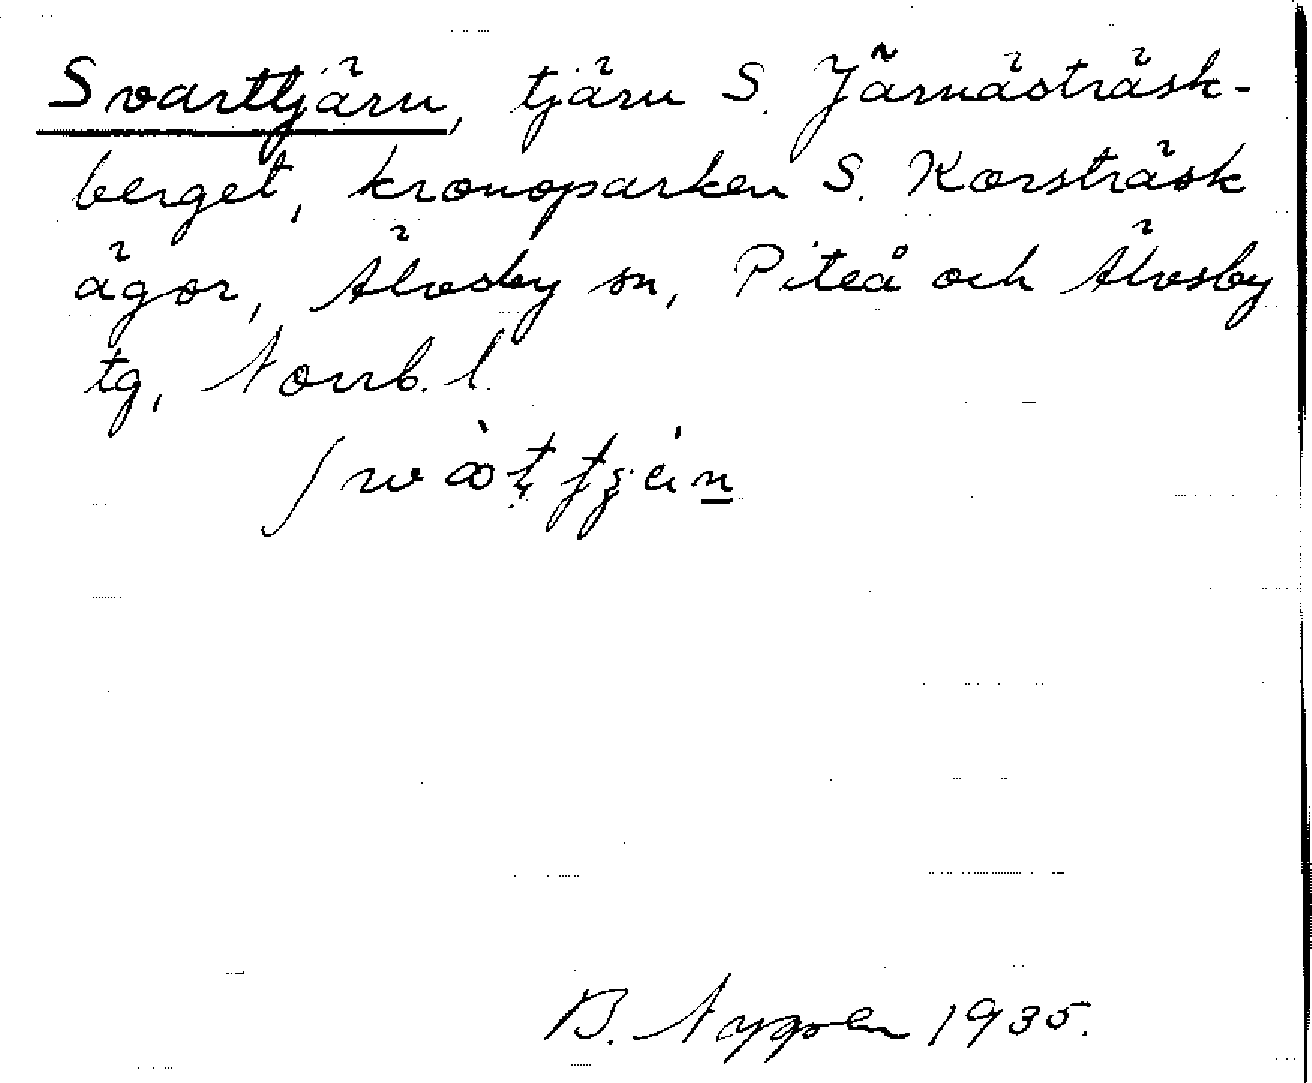 Svarttjärn, tjärn S. Järnästräsk-
berget, kronoparken S. Korsträsk
ägor, Älvsby sn, Piteå och Älvsby
tg, Norrb. l.
B. Nygren 1935.